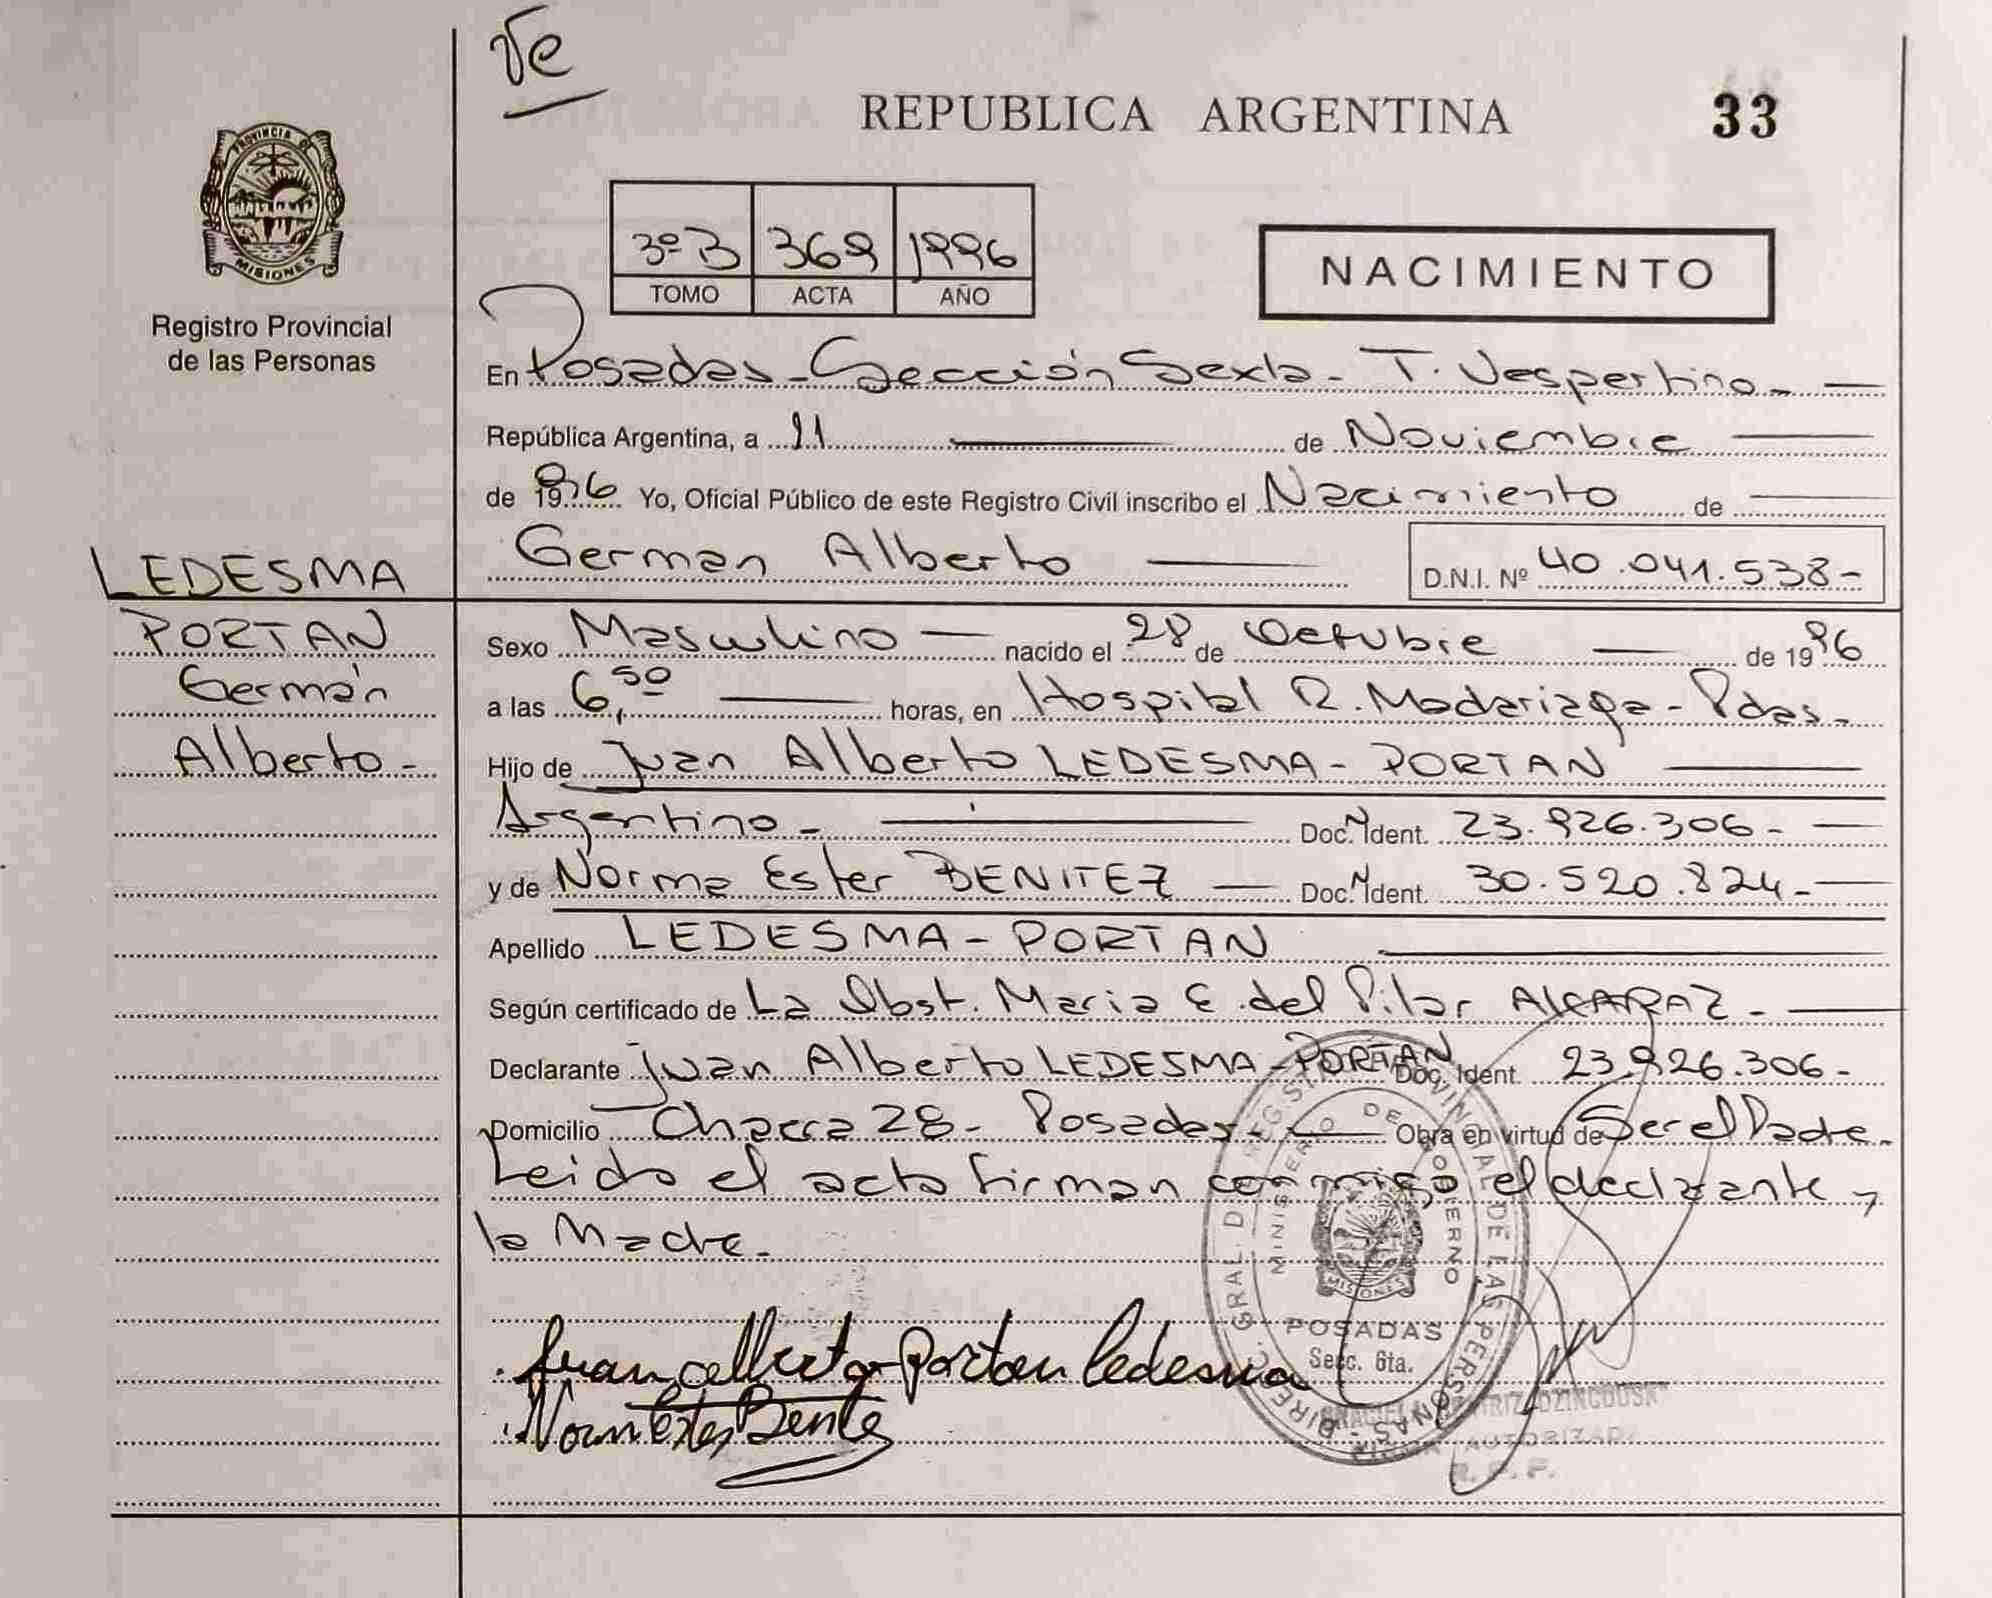 Te
REPUBLICA ARGENTINA
33
PROVINCIA DE
MISIONES
Registro Provincial
de las Personas
3º B 369 1996
TOMO ACTA AÑO
NACIMIENTO
En Posadas - Sección Sexta - T. Vespertino -
República Argentina, a 11 de Noviembre
de 1996 Yo, Oficial Público de este Registro Civil inscribo el Nacimiento de
German Alberto D.N.I. Nº 40.041.538-
LEDESMA
PORTAN
Germán
Alberto -
Sexo Masculino nacido el 28 de Octubre de 1996
a las 6,50 horas, en Hospital R. Madariaga - Pdas -
Hijo de Juan Alberto LEDESMA - PORTAN
Argentino - Doc. N Ident. 23.926.306-
y de Norma Ester BENITEZ Doc. N Ident. 30.520.824-
Apellido LEDESMA - PORTAN
Según certificado de La Obst. Maria E. del Pilar ALCARAZ -
Declarante Juan Alberto LEDESMA - PORTAN Doc. Ident. 23.926.306-
Domicilio Chacra 28 - Posadas - Obra en virtud de Ser el Padre.
Leido el acta firman conmigo el declarante y
la Madre.
Juan Alberto Portan Ledesma
Norma Ester Benitez
DIREC. GRAL. DE REGISTRO PROVINCIAL DE LAS PERSONAS
MINISTERIO DE GOBIERNO
MISIONES
POSADAS
Secc. 6ta.